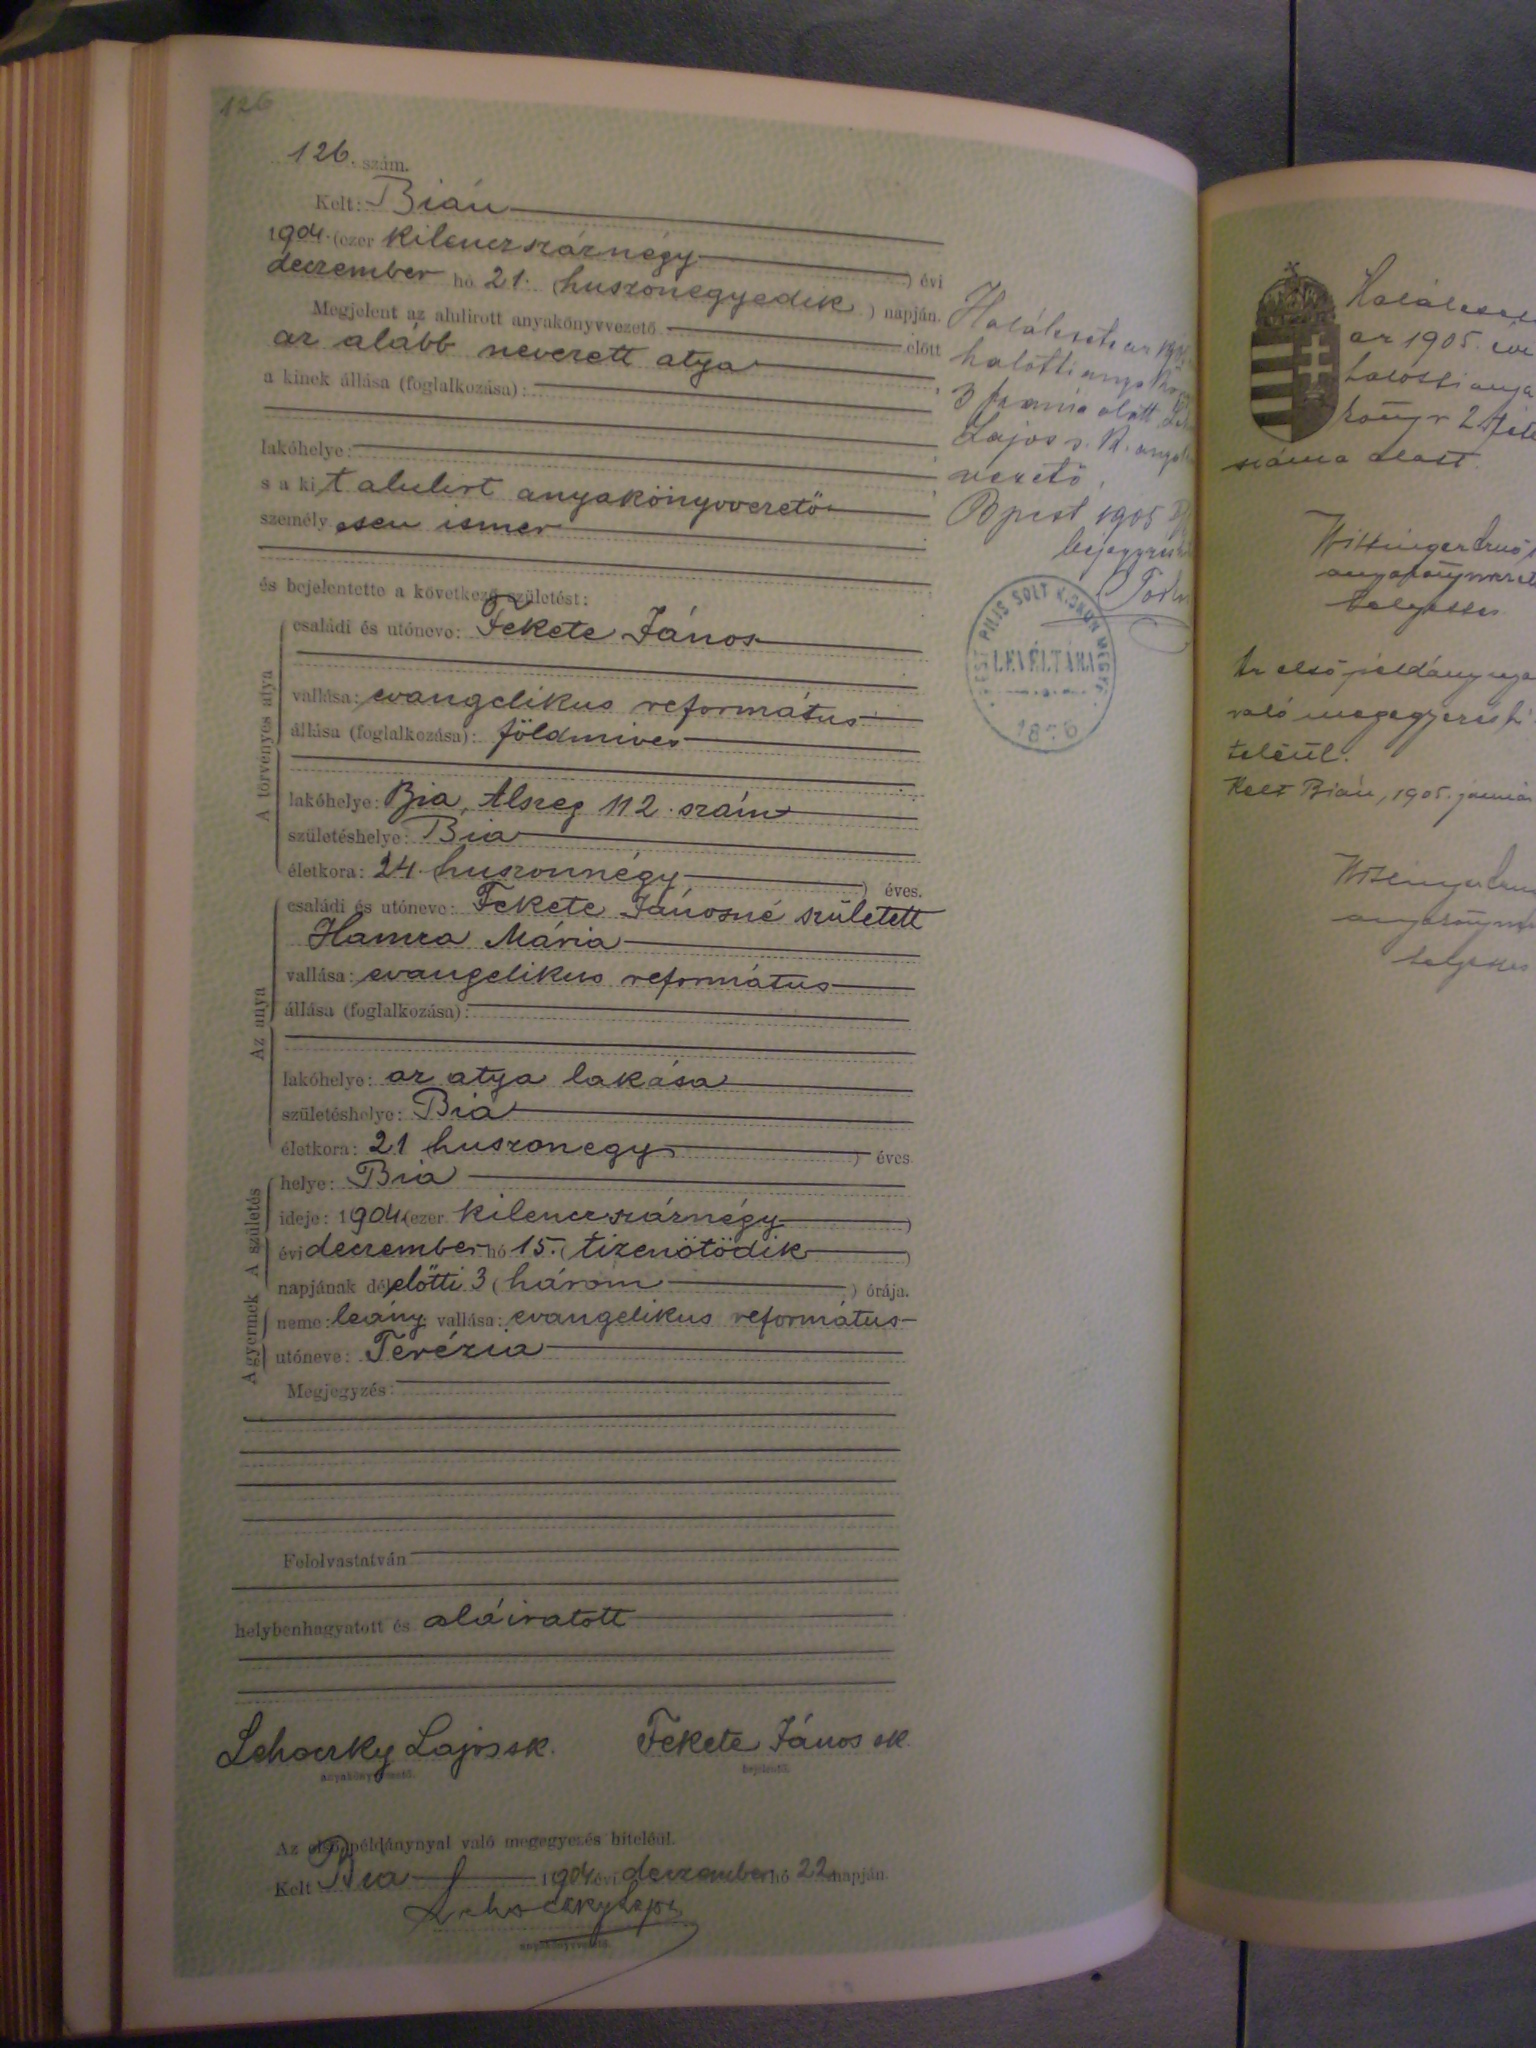 126
126. szám.
Kelt: Bián
1904. (ezer kilenczszáznégy) évi
deczember hó 21. (huszonegyedik) napján.
Megjelent az alulirott anyakönyvvezető előtt
az alább nevezett atya
a kinek állása (foglalkozása):
lakóhelye:
s a kit alulirt anyakönyvvezető
személyesen ismer
és bejelentette a következő születést:
A törvényes atya
családi és utóneve: Fekete János
vallása: evangelikus református
állása (foglalkozása): földmives
lakóhelye: Bia, Alszeg 112. szám
születéshelye: Bia
életkora: 24. huszonnégy) éves.
Az anya
családi és utóneve: Fekete Jánosné született
Hamza Mária
vallása: evangelikus református
állása (foglalkozása):
lakóhelye: az atya lakása
születéshelye: Bia
életkora: 21 huszonegy) éves
A születés
helye: Bia
ideje: 1904 (ezer kilenczszáznégy)
évi deczember hó 15. (tizenötödik)
napjának délelőtti 3 (három) órája.
A gyermek
neme: leány vallása: evangelikus református
utóneve: Terézia
Megjegyzés:
Felolvastatván
helybenhagyatott és aláiratott
Lehoczky Lajos sk. Fekete János sk.
anyakönyvvezető. bejelentő.
Az első példánynyal való megegyezés hiteléül.
Kelt Bia 1904 évi deczember hó 22 napján.
Lehoczky Lajos
anyakönyvvezető.
Haláleset az
halotti
3 szám alatt
Lajos s. k.
vezető.
Bpest 1905
PEST PILIS SOLT KISKUN MEGYE
LEVÉLTÁRA
1876
az 1905. évi
halotti anya
könyv 2
száma alatt.
helyettes
Az első példány
való megegyezés hi
teléül.
Kelt Bián, 1905. január
helyettes